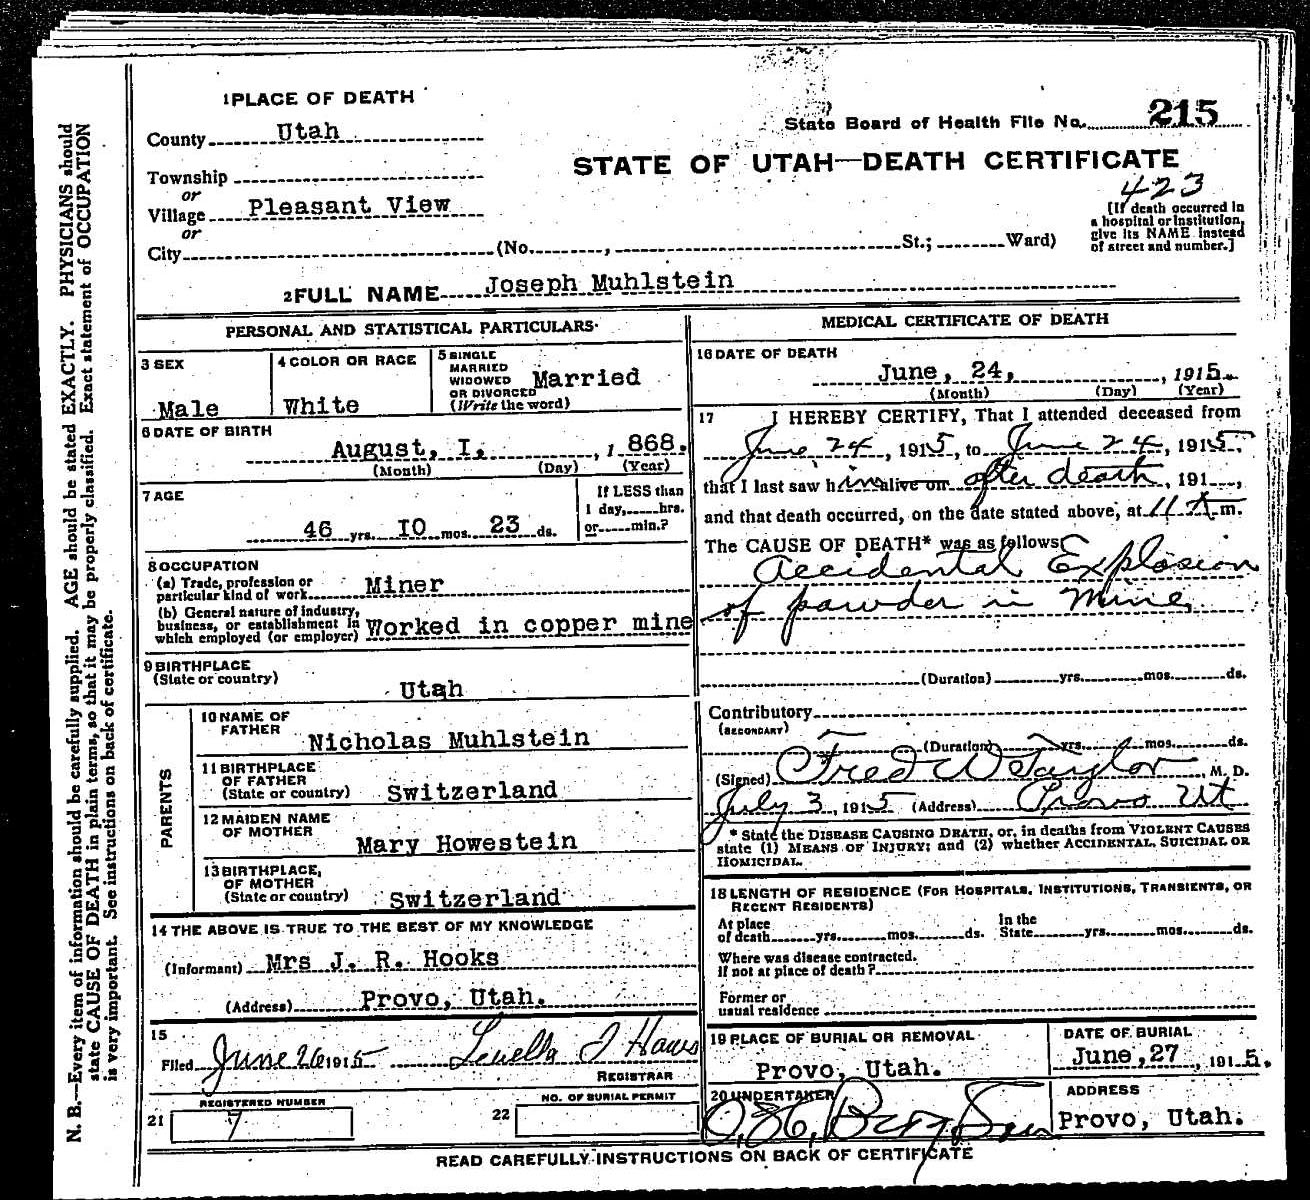 1 PLACE OF DEATH
County Utah
Township
or
Village Pleasant View
or
City (No. , St.; Ward)
State Board of Health File No. 215
STATE OF UTAH—DEATH CERTIFICATE
423
[If death occurred in
a hospital or institution,
give its NAME instead
of street and number.]
2 FULL NAME Joseph Muhlstein
PERSONAL AND STATISTICAL PARTICULARS
3 SEX
Male
4 COLOR OR RACE
White
5 SINGLE
MARRIED
WIDOWED
OR DIVORCED
(Write the word)
Married
6 DATE OF BIRTH
August, I, , 1 868.
(Month) (Day) (Year)
7 AGE
46 yrs. IO mos. 23 ds.
If LESS than
1 day, hrs.
or min.?
8 OCCUPATION
(a) Trade, profession or
particular kind of work Miner
(b) General nature of industry,
business, or establishment in
which employed (or employer) Worked in copper mine
9 BIRTHPLACE
(State or country)
Utah
PARENTS
10 NAME OF
FATHER
Nicholas Muhlstein
11 BIRTHPLACE
OF FATHER
(State or country) Switzerland
12 MAIDEN NAME
OF MOTHER
Mary Howestein
13 BIRTHPLACE,
OF MOTHER
(State or country) Switzerland
14 THE ABOVE IS TRUE TO THE BEST OF MY KNOWLEDGE
(Informant) Mrs J. R. Hooks
(Address) Provo, Utah.
15
Filed June 26 1915
REGISTRAR
REGISTERED NUMBER
21 7
NO. OF BURIAL PERMIT
22
MEDICAL CERTIFICATE OF DEATH
16 DATE OF DEATH
June, 24, , 1915.
(Month) (Day) (Year)
17 I HEREBY CERTIFY, That I attended deceased from
June 24 , 1915, to June 24, 1915.
that I last saw him alive on after death , 191 ,
and that death occurred, on the date stated above, at 11 A m.
The CAUSE OF DEATH* was as follows:
Accidental Explosion
of powder in Mine
(Duration) yrs. mos. ds.
Contributory
(SECONDARY)
(Duration) yrs. mos. ds.
(Signed) Fred W Taylor , M. D.
July 3, 1915 (Address) Provo Ut
* State the DISEASE CAUSING DEATH, or, in deaths from VIOLENT CAUSES
state (1) MEANS OF INJURY; and (2) whether ACCIDENTAL, SUICIDAL OR
HOMICIDAL.
18 LENGTH OF RESIDENCE (FOR HOSPITALS, INSTITUTIONS, TRANSIENTS, OR
RECENT RESIDENTS)
At place
of death yrs. mos. ds.
In the
State yrs. mos. ds.
Where was disease contracted.
if not at place of death?
Former or
usual residence
19 PLACE OF BURIAL OR REMOVAL
Provo, Utah.
DATE OF BURIAL
June, 27 , 1915.
20 UNDERTAKER
ADDRESS
Provo, Utah.
READ CAREFULLY INSTRUCTIONS ON BACK OF CERTIFICATE
N. B.—Every item of information should be carefully supplied. AGE should be stated EXACTLY. PHYSICIANS should
state CAUSE OF DEATH in plain terms, so that it may be properly classified. Exact statement of OCCUPATION
is very important. See instructions on back of certificate.